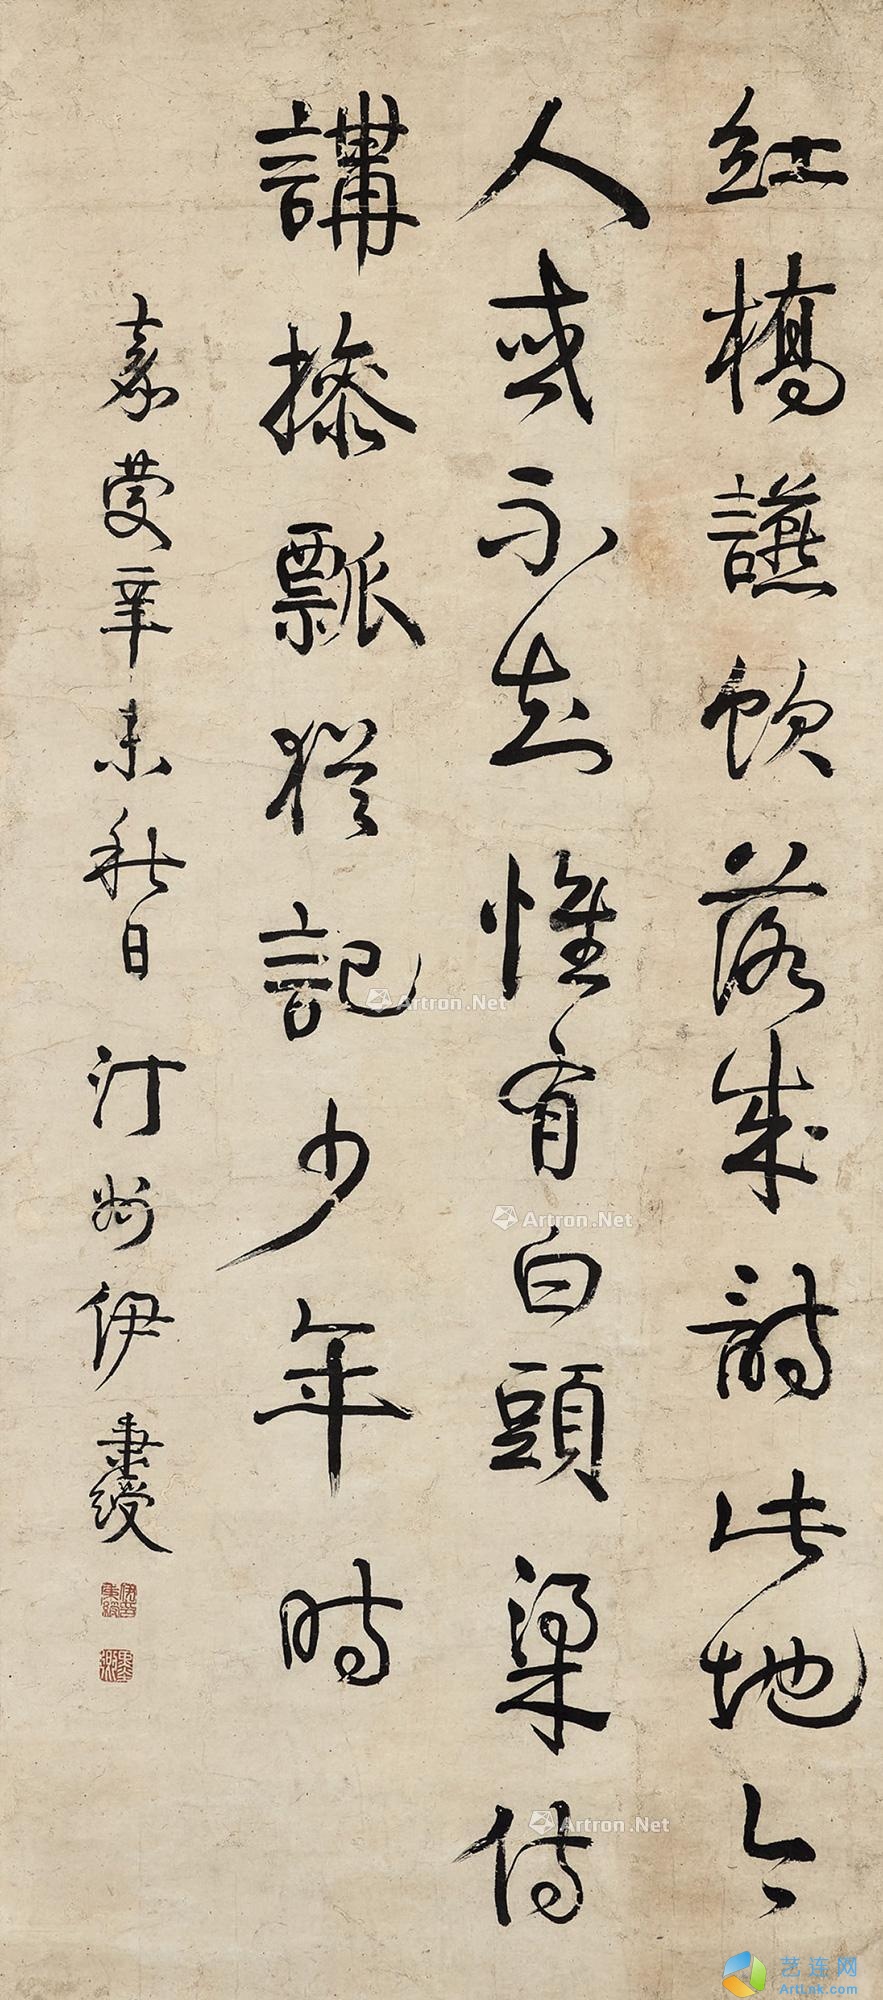 紅橋讌飲落成詩此地今
人或不知惟有白頭梁侍
講擽瓢猶記少年時
嘉慶辛未秋日汀州伊秉綬
Artron.Net
Artron.Net
Artron.Net
艺连网
ArtLink.com